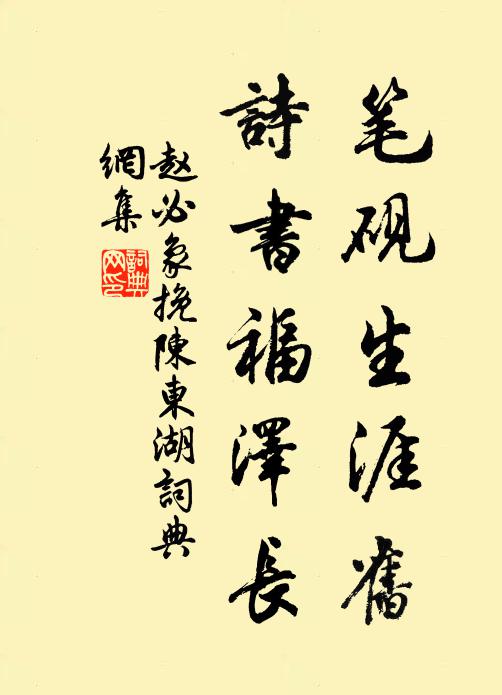 笔砚生涯舊
詩書福澤長
赵必象挽陳東湖詞典
網集
詞典
网印